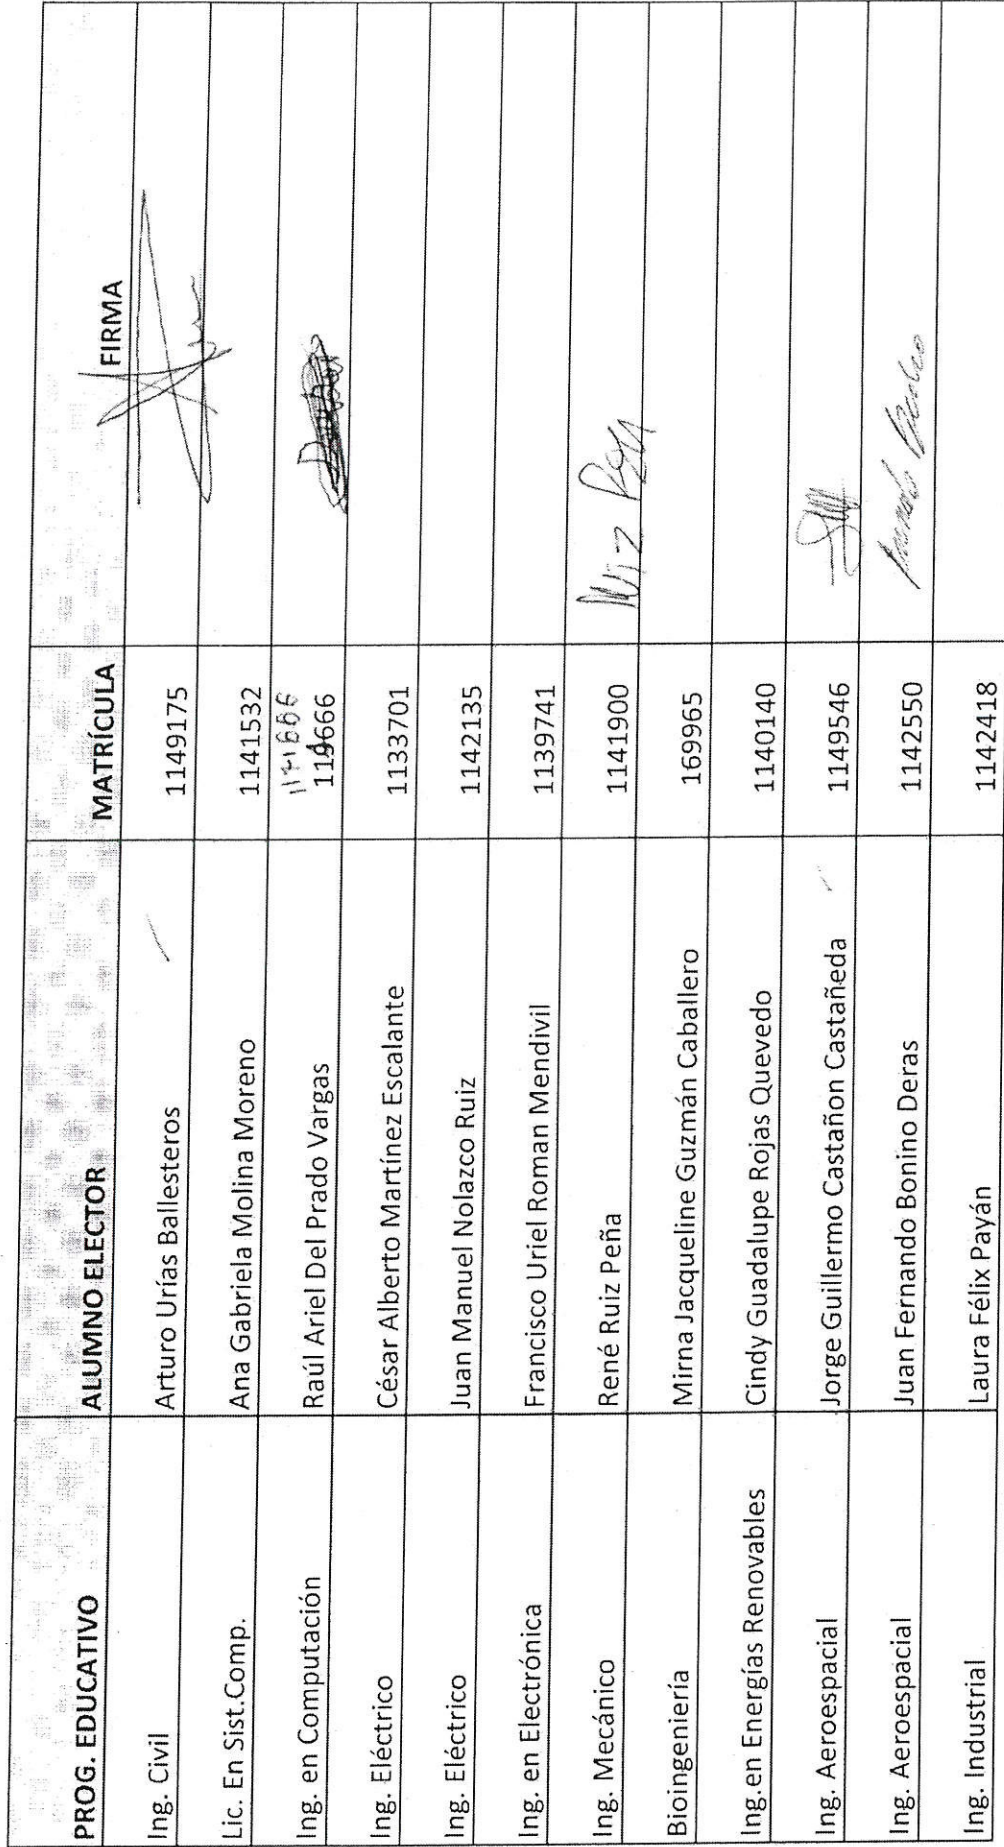 PROG. EDUCATIVO ALUMNO ELECTOR MATRÍCULA FIRMA
Ing. Civil Arturo Urías Ballesteros 1149175
Lic. En Sist.Comp. Ana Gabriela Molina Moreno 1141532
1141666
Ing. en Computación Raúl Ariel Del Prado Vargas 119666
Ing. Eléctrico César Alberto Martínez Escalante 1133701
Ing. Eléctrico Juan Manuel Nolazco Ruiz 1142135
Ing. en Electrónica Francisco Uriel Roman Mendivil 1139741
Ing. Mecánico René Ruiz Peña 1141900
Bioingeniería Mirna Jacqueline Guzmán Caballero 169965
Ing.en Energías Renovables Cindy Guadalupe Rojas Quevedo 1140140
Ing. Aeroespacial Jorge Guillermo Castañon Castañeda 1149546
Ing. Aeroespacial Juan Fernando Bonino Deras 1142550
Ing. Industrial Laura Félix Payán 1142418